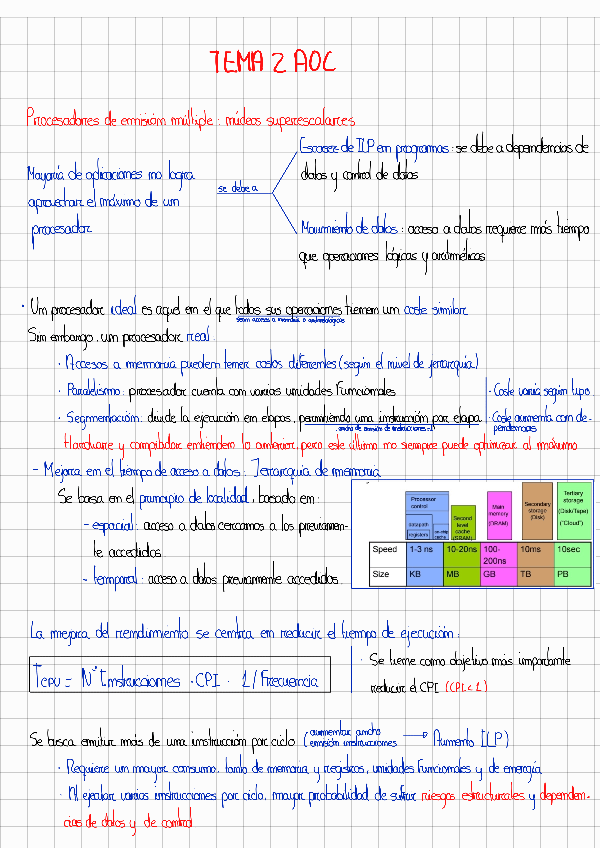 TEMA 2 AOC
Procesadores de emisión múltiple: núcleos superescalares
Mayoría de aplicaciones no logra
aprovechar el máximo de un
procesador
se debe a
Escasez de ILP en programas: se debe a dependencias de
datos y control de datos
Movimiento de datos: acceso a datos requiere más tiempo
que operaciones lógicas y aritméticas
· Un procesador ideal es aquel en el que todos sus operaciones tienen un coste similar
según accesos a memoria o aritmológicas
Sin embargo, un procesador real:
· Accesos a memoria pueden tener costos diferentes (según el nivel de jerarquía)
· Paralelismo: procesador cuenta con varias unidades funcionales
· Coste varía según tipo
· Segmentación: divide la ejecución en etapas, permitiendo una instrucción por etapa
ancho de emisión de instrucciones=1
· Coste aumenta con de-
pendencias
Hardware y compilador entienden lo anterior, pero este último no siempre puede optimizar al máximo
- Mejora en el tiempo de acceso a datos: Jerarquía de memoria
Se basa en el principio de localidad, basado en:
- espacial: acceso a datos cercanos a los previamen-
te accedidos
- temporal: acceso a datos previamente accedidos
Processor
control
datapath
registers
on-chip
cache
Second
level
cache
(SRAM)
Main
memory
(DRAM)
Secondary
storage
(Disk)
Tertiary
storage
(Disk/Tape)
("Cloud")
Speed 1-3 ns 10-20ns 100-200ns 10ms 10sec
Size KB MB GB TB PB
La mejora del rendimiento se centra en reducir el tiempo de ejecución:
Tcpu = Nº Instrucciones · CPI · 1/Frecuencia
· Se tiene como objetivo más importante
reducir el CPI (CPI<1)
Se busca emitir más de una instrucción por ciclo (aumentar ancho
emisión instrucciones → Aumento ILP)
· Requiere un mayor consumo, tanto de memoria y registros, unidades funcionales y de energía
· Al ejecutar varias instrucciones por ciclo, mayor probabilidad de sufrir riesgos estructurales y dependen-
cias de datos y de control